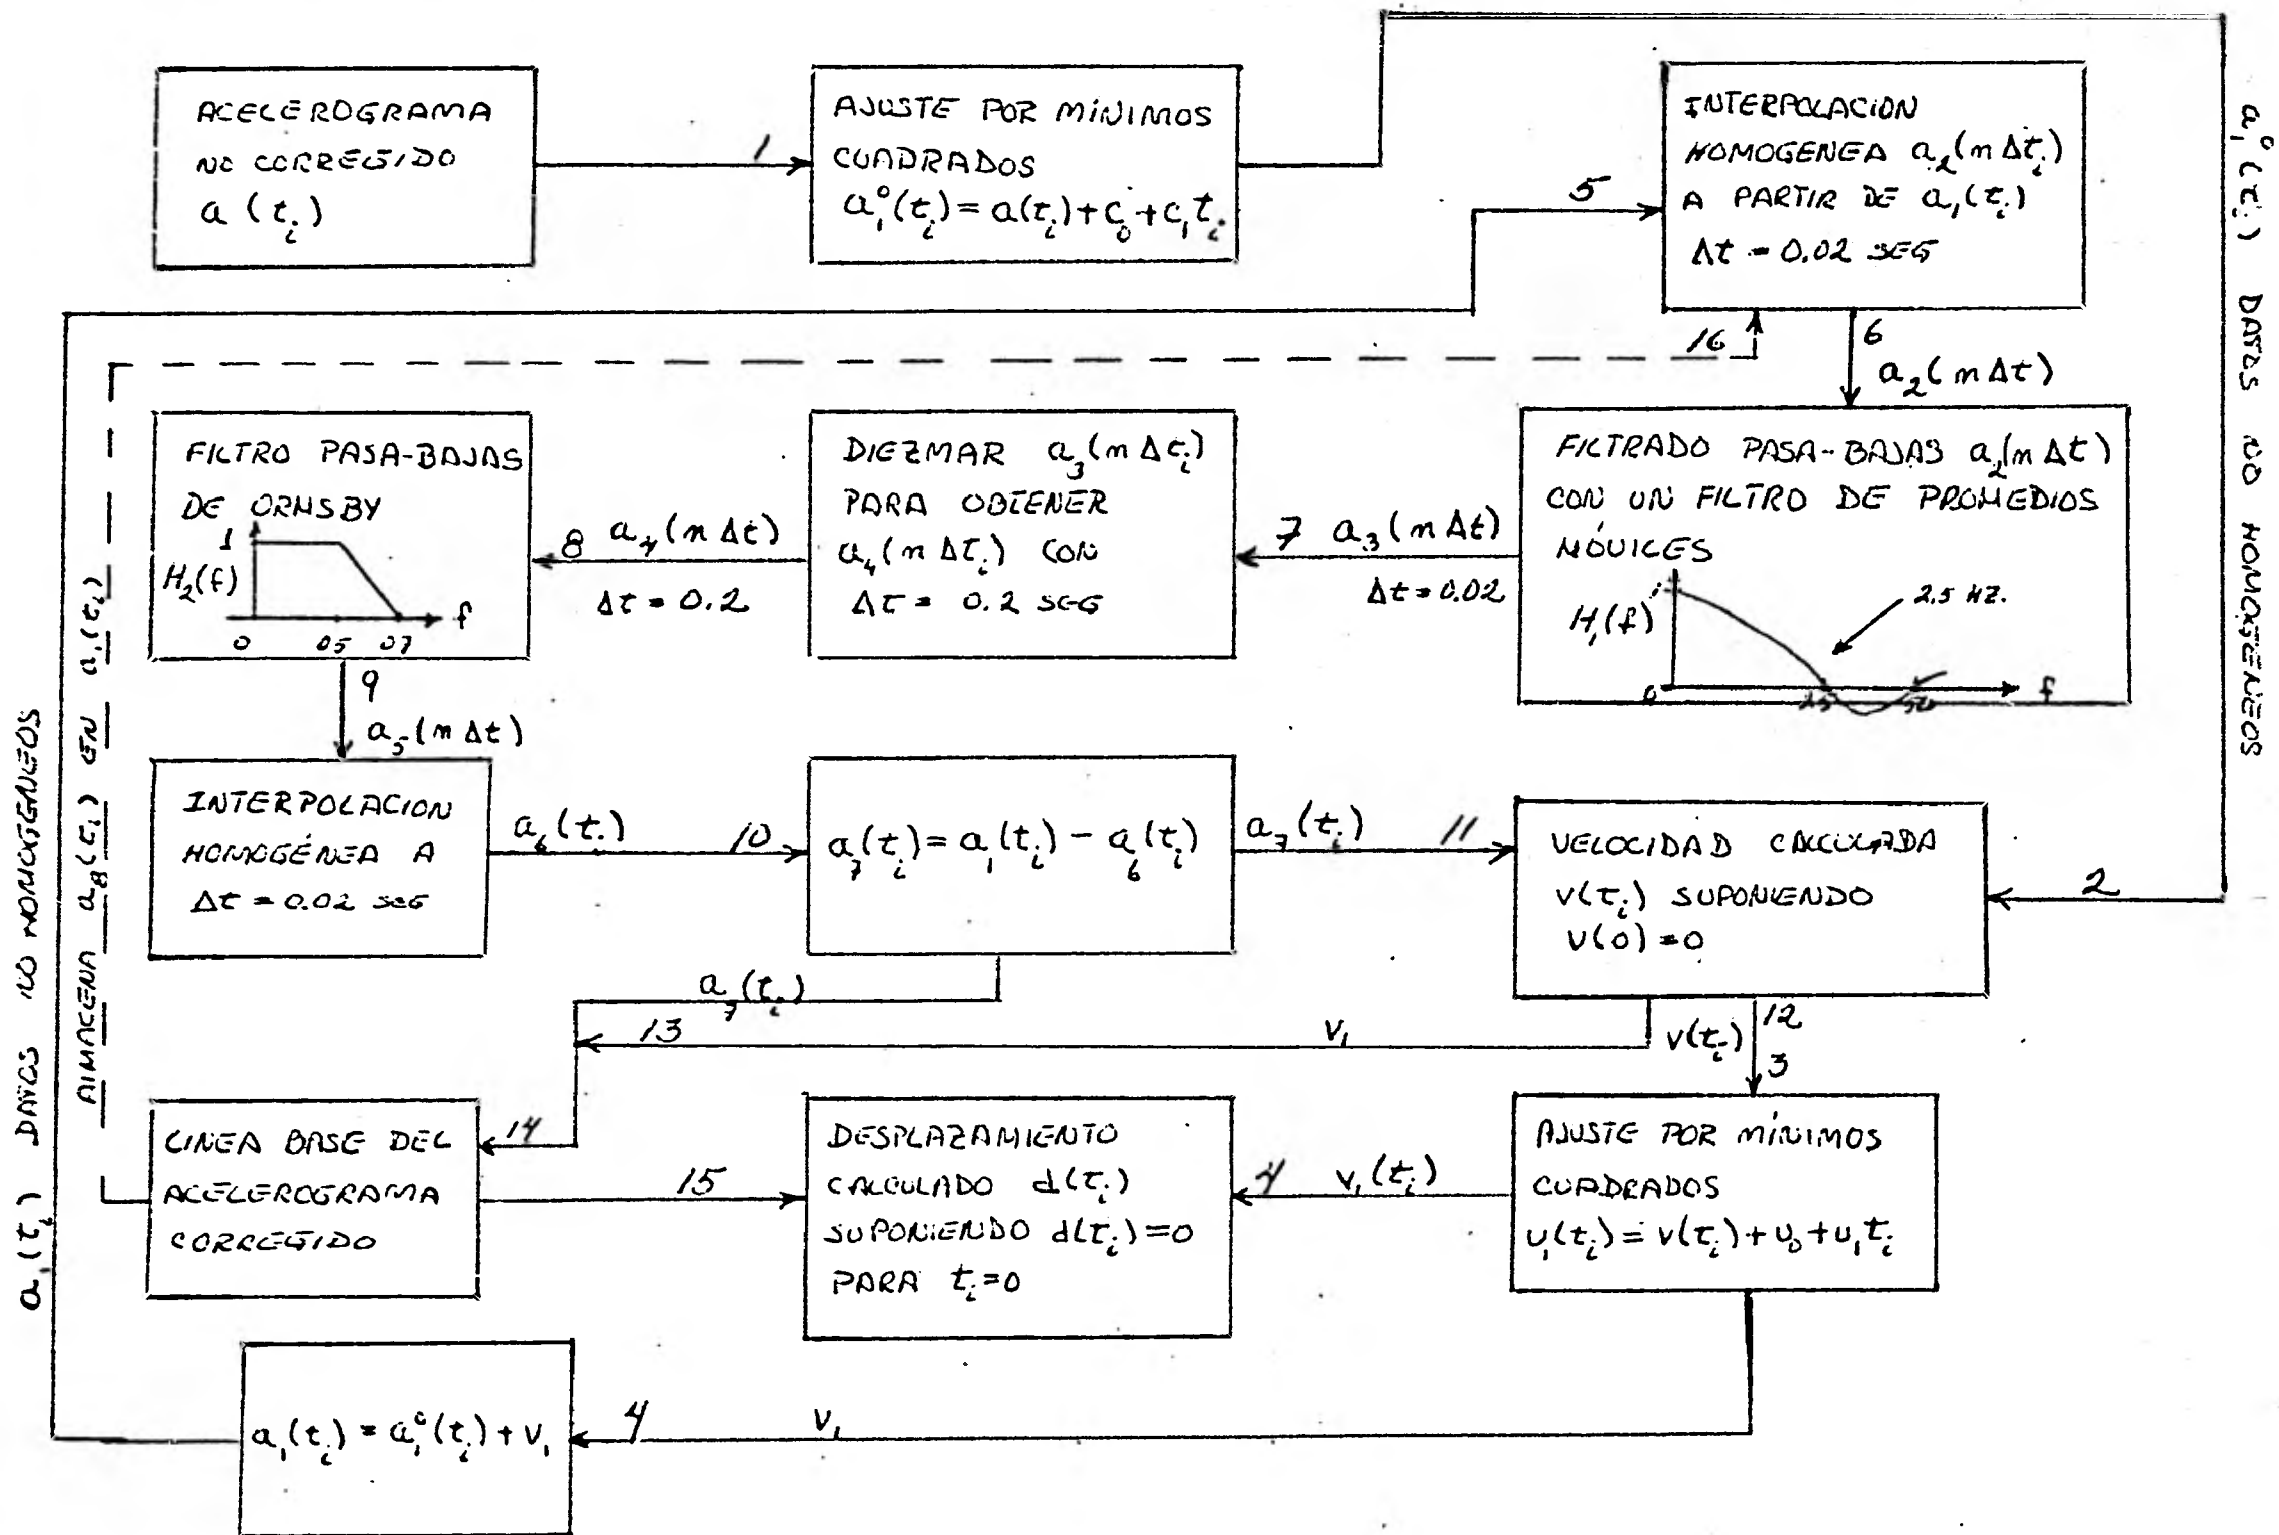 ACELEROGRAMA
NO CORREGIDO
a (tᵢ)
1
AJUSTE POR MÍNIMOS
CUADRADOS
a₁°(tᵢ) = a(tᵢ) + C₀ + C₁tᵢ
5
INTERPOLACION
HOMOGENEA a₂(nΔtᵢ)
A PARTIR DE a₁(tᵢ)
Δt = 0.02 SEG
a₁°(tᵢ) DATOS NO HOMOGÉNEOS
16
6
a₂(nΔt)
FILTRO PASA-BAJAS
DE ORMSBY
1
H₂(f)
0 05 07 f
8 a₄(nΔt)
Δt = 0.2
DIEZMAR a₃(nΔtᵢ)
PARA OBTENER
a₄(nΔtᵢ) CON
Δt = 0.2 SEG
7 a₃(nΔt)
Δt = 0.02
FILTRADO PASA-BAJAS a₂(nΔt)
CON UN FILTRO DE PROMEDIOS
MÓVILES
1
2.5 HZ.
H₁(f)
0 25 50 f
9
a₅(nΔt)
INTERPOLACION
HOMOGÉNEA A
Δt = 0.02 SEG
a₆(tᵢ) 10
a₇(tᵢ) = a₁(tᵢ) - a₆(tᵢ)
a₇(tᵢ) 11
VELOCIDAD CALCULADA
v(tᵢ) SUPONIENDO
v(0) = 0
2
a₇(tᵢ)
13
v₁
v(tᵢ)
12
3
LINEA BASE DEL
ACELEROGRAMA
CORREGIDO
14
15
DESPLAZAMIENTO
CALCULADO d(tᵢ)
SUPONIENDO d(tᵢ) = 0
PARA tᵢ = 0
4 v₁(tᵢ)
AJUSTE POR MÍNIMOS
CUADRADOS
v₁(tᵢ) = v(tᵢ) + v₀ + v₁tᵢ
a₁(tᵢ) = a₁°(tᵢ) + v₁
4
v₁
a₁(tᵢ) DATOS NO HOMOGENEOS
ALMACENA a₈(tᵢ) EN a₁(tᵢ)